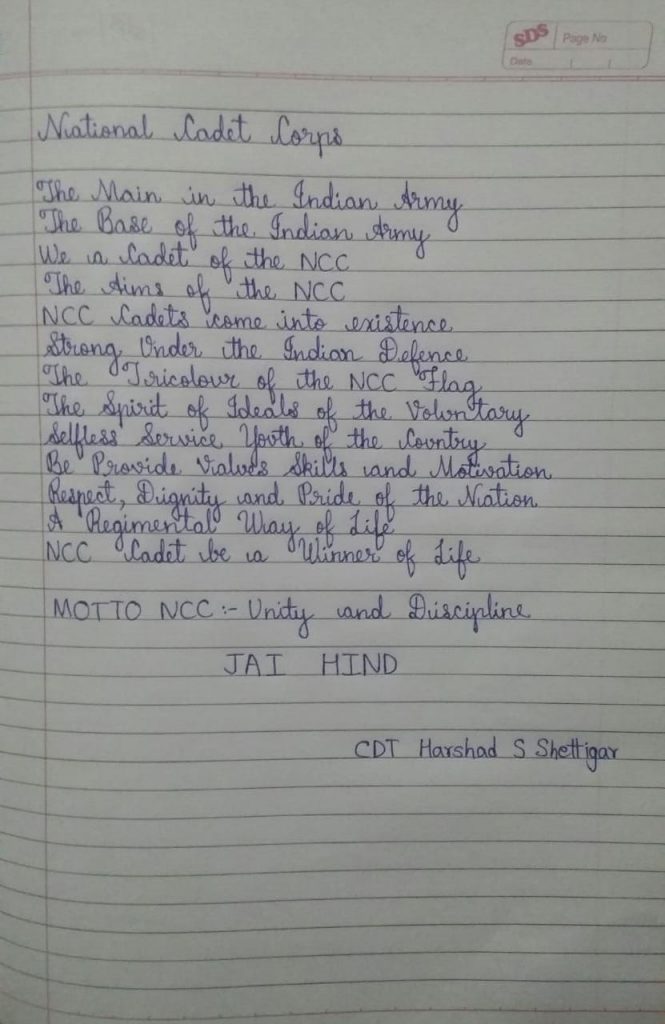 SDS
Page No
Date
National Cadet Corps
The Main in the Indian Army
The Base of the Indian Army
We a Cadet of the NCC
The Aims of the NCC
NCC Cadets come into existence
Strong Under the Indian Defence
The Tricolour of the NCC Flag
The Spirit of Ideals of the Voluntary
Selfless Service Youth of the Country
Be Provide Values Skills and Motivation
Respect, Dignity and Pride of the Nation
A Regimental Way of Life
NCC Cadet be a Winner of Life
MOTTO NCC :- Unity and Discipline
JAI HIND
CDT Harshad S Shettigar